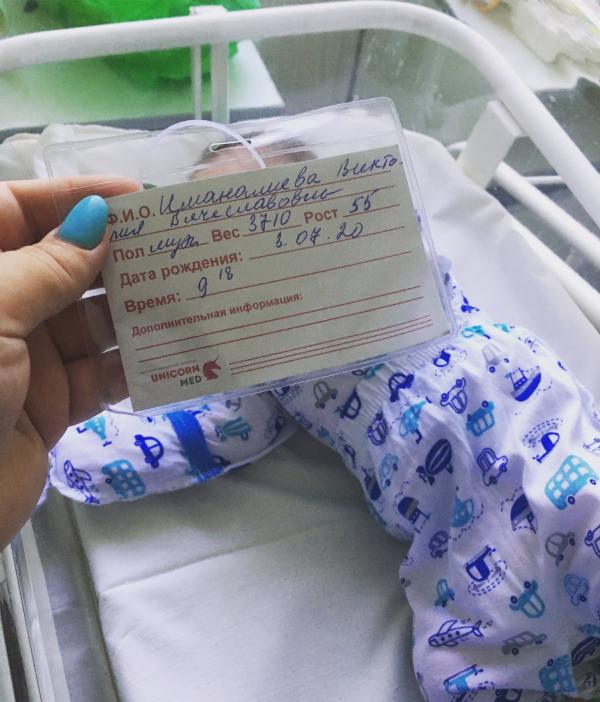 Ф.И.О. Иманалиева Викто-
рия Вячеславовны
Пол муж Вес 3710 Рост 55
Дата рождения: 3.07.20
Время: 9 18
Дополнительная информация:
UNICORN
MED